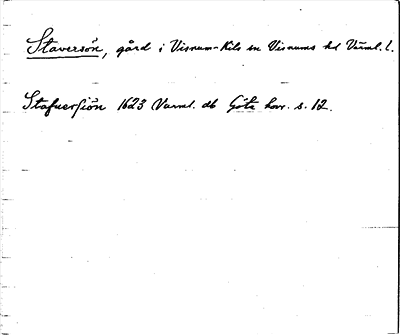 Staversön, gård i Visnum-Kils sn Visnums hd Värml. l.
Stafuersiön 1623 Värml. db Göta hovr. s. 12.